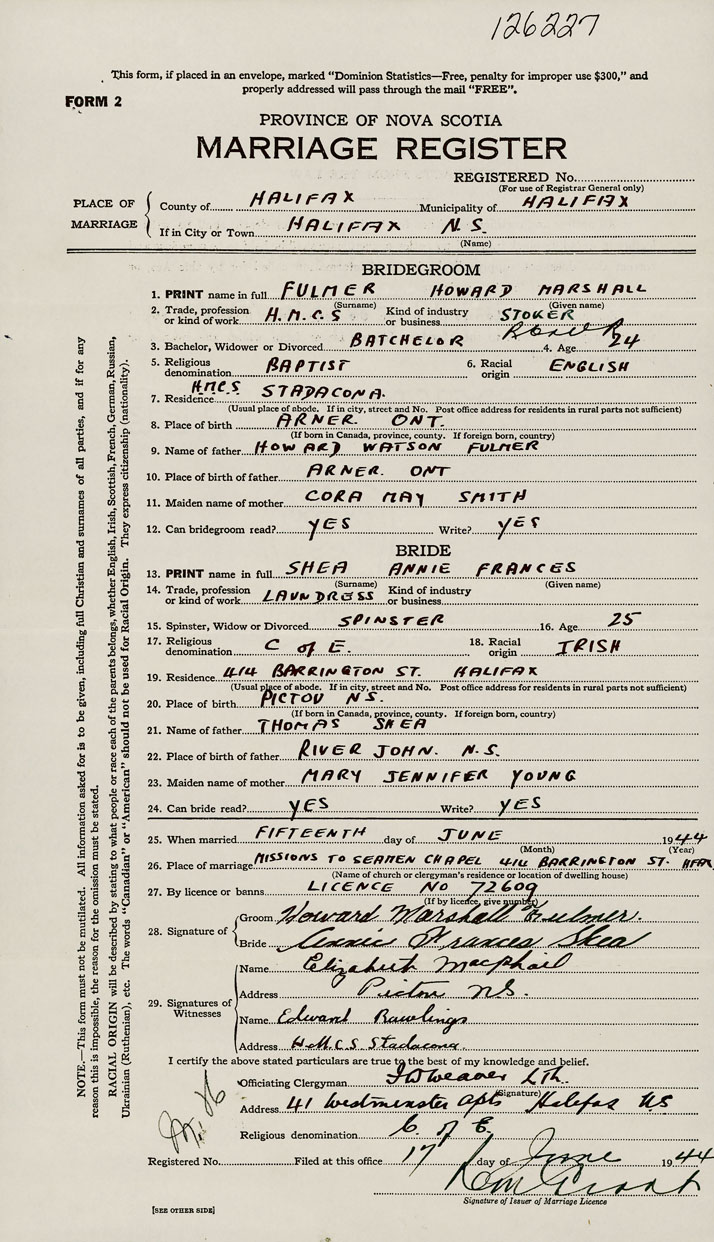 126227
This form, if placed in an envelope, marked "Dominion Statistics—Free, penalty for improper use $300," and
properly addressed will pass through the mail "FREE".
FORM 2
PROVINCE OF NOVA SCOTIA
MARRIAGE REGISTER
REGISTERED No.
(For use of Registrar General only)
PLACE OF MARRIAGE
County of HALIFAX Municipality of HALIFAX
If in City or Town HALIFAX N.S.
(Name)
BRIDEGROOM
1. PRINT name in full FULMER HOWARD MARSHALL
(Surname) (Given name)
2. Trade, profession or kind of work H.M.C.S Kind of industry or business STOKER
3. Bachelor, Widower or Divorced BATCHELOR 4. Age 24
5. Religious denomination BAPTIST 6. Racial origin ENGLISH
7. Residence H.M.C.S STADACONA.
(Usual place of abode. If in city, street and No. Post office address for residents in rural parts not sufficient)
8. Place of birth ARNER. ONT.
(If born in Canada, province, county. If foreign born, country)
9. Name of father HOWARD WATSON FULMER
10. Place of birth of father ARNER. ONT
11. Maiden name of mother CORA MAY SMITH
12. Can bridegroom read? YES Write? YES
BRIDE
13. PRINT name in full SHEA ANNIE FRANCES
(Surname) (Given name)
14. Trade, profession or kind of work LAUNDRESS Kind of industry or business
15. Spinster, Widow or Divorced SPINSTER 16. Age 25
17. Religious denomination C of E. 18. Racial origin IRISH
19. Residence 414 BARRINGTON ST. HALIFAX
(Usual place of abode. If in city, street and No. Post office address for residents in rural parts not sufficient)
20. Place of birth PICTOU N.S.
(If born in Canada, province, county. If foreign born, country)
21. Name of father THOMAS SHEA
22. Place of birth of father RIVER JOHN. N.S.
23. Maiden name of mother MARY JENNIFER YOUNG
24. Can bride read? YES Write? YES
25. When married FIFTEENTH day of JUNE 1944
(Month) (Year)
26. Place of marriage MISSIONS TO SEAMEN CHAPEL 414 BARRINGTON ST.
(Name of church or clergyman's residence or location of dwelling house)
27. By licence or banns LICENCE No 72609
(If by licence, give number)
28. Signature of
Groom Howard Marshall Fulmer.
Bride Annie Frances Shea
29. Signatures of Witnesses
Name Elizabeth Macphail
Address Pictou N.S.
Name Edward Rawlings
Address H.M.C.S Stadacona
I certify the above stated particulars are true to the best of my knowledge and belief.
Officiating Clergyman Weaver L.Th.
(Signature)
Address 41 Westminster Apts Halifax N.S
Religious denomination C. of E.
Registered No. Filed at this office 17 day of June 1944
Signature of Issuer of Marriage Licence
[SEE OTHER SIDE]
NOTE.—This form must not be mutilated. All information asked for is to be given, including full Christian and surnames of all parties, and if for any
reason this is impossible, the reason for the omission must be stated.
RACIAL ORIGIN will be described by stating to what people or race each of the parents belongs, whether English, Irish, Scottish, French, German, Russian,
Ukrainian (Ruthenian), etc. The words "Canadian" or "American" should not be used for Racial Origin. They express citizenship (nationality).